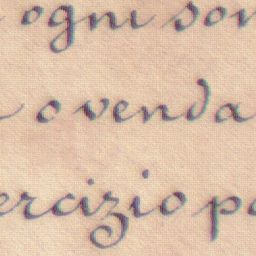 ogni son
o venda
ercizio pa